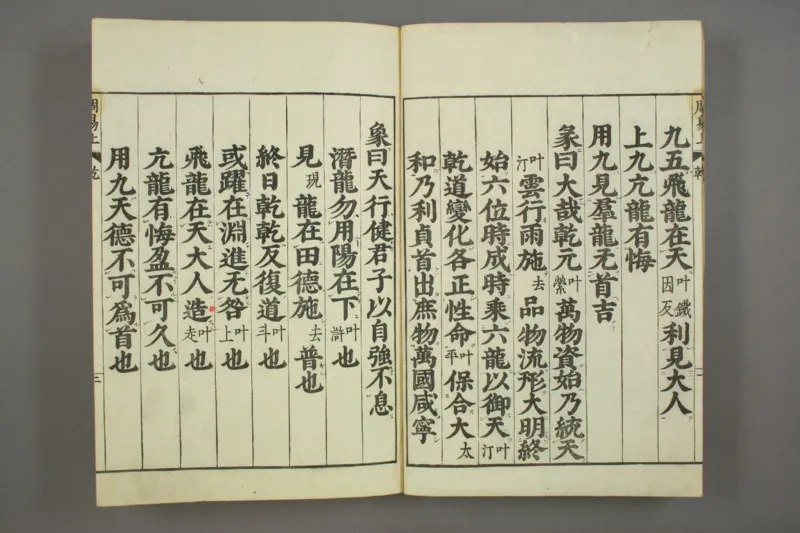 九五飛龍在天叶鐵因反利見大人
上九亢龍有悔
用九見羣龍无首吉
彖曰大哉乾元叶縈萬物資始乃統天
叶汀雲行雨施去品物流形大明終
始六位時成時乘六龍以御天叶汀
乾道變化各正性命叶平保合大太
和乃利貞首出庶物萬國咸寧
周易上
乾
二
象曰天行健君子以自強不息
潛龍勿用陽在下叶滸也
見現龍在田德施去普也
終日乾乾反復道叶斗也
或躍在淵進无咎叶上也
飛龍在天大人造叶走也
亢龍有悔盈不可久也
用九天德不可爲首也
周易上
乾
三